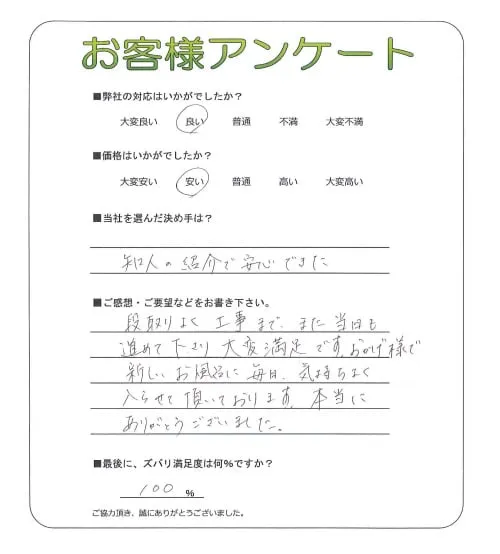 お客様アンケート
■弊社の対応はいかがでしたか？
大変良い 良い 普通 不満 大変不満
■価格はいかがでしたか？
大変安い 安い 普通 高い 大変高い
■当社を選んだ決め手は？
知人の紹介で安心できた
■ご感想・ご要望などをお書き下さい。
段取りよく工事まで、また当日も
進めて下さり大変満足です。おかげ様で
新しいお風呂に毎日、気持ちよく
入らせて頂いております。本当に
ありがとうございました。
■最後に、ズバリ満足度は何%ですか？
100 %
ご協力頂き、誠にありがとうございました。